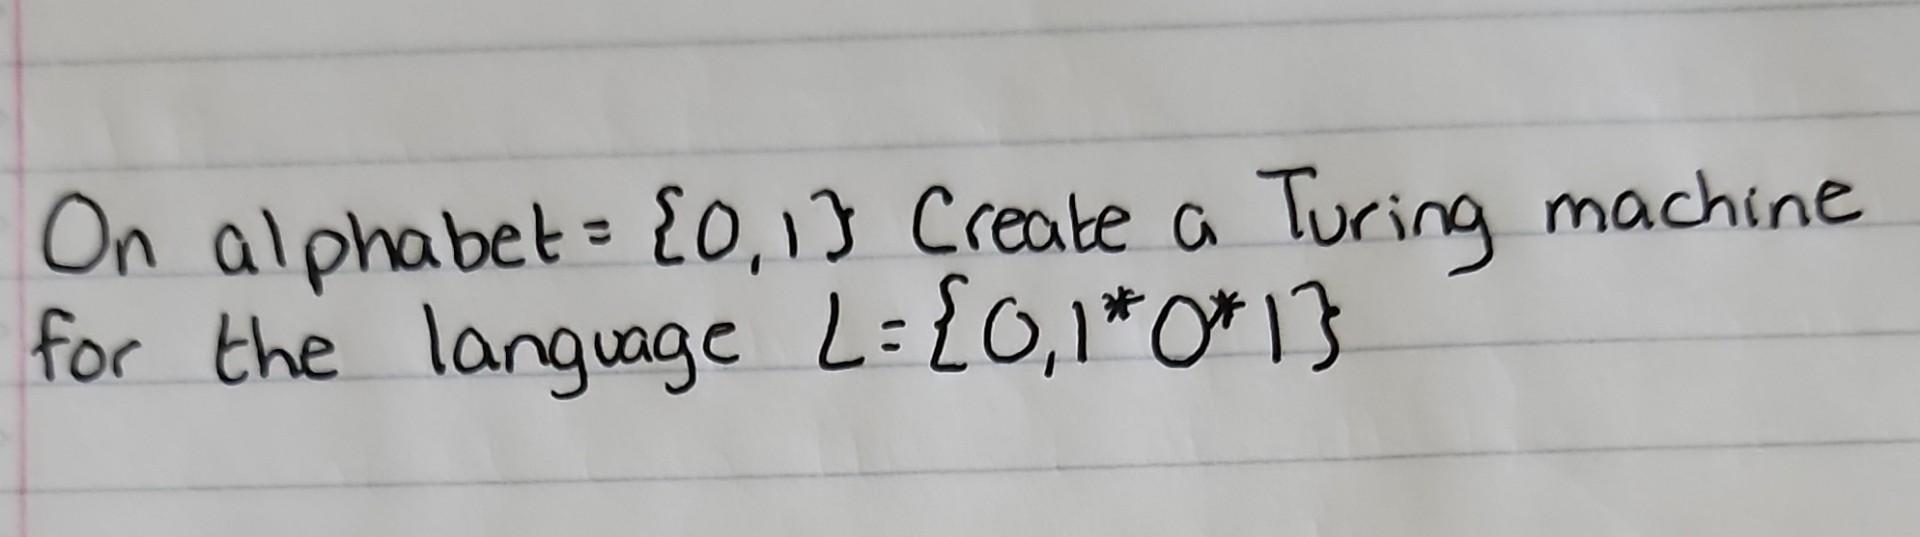 On alphabet = {0,1} Create a Turing machine
for the language L = {0,1*0*1}